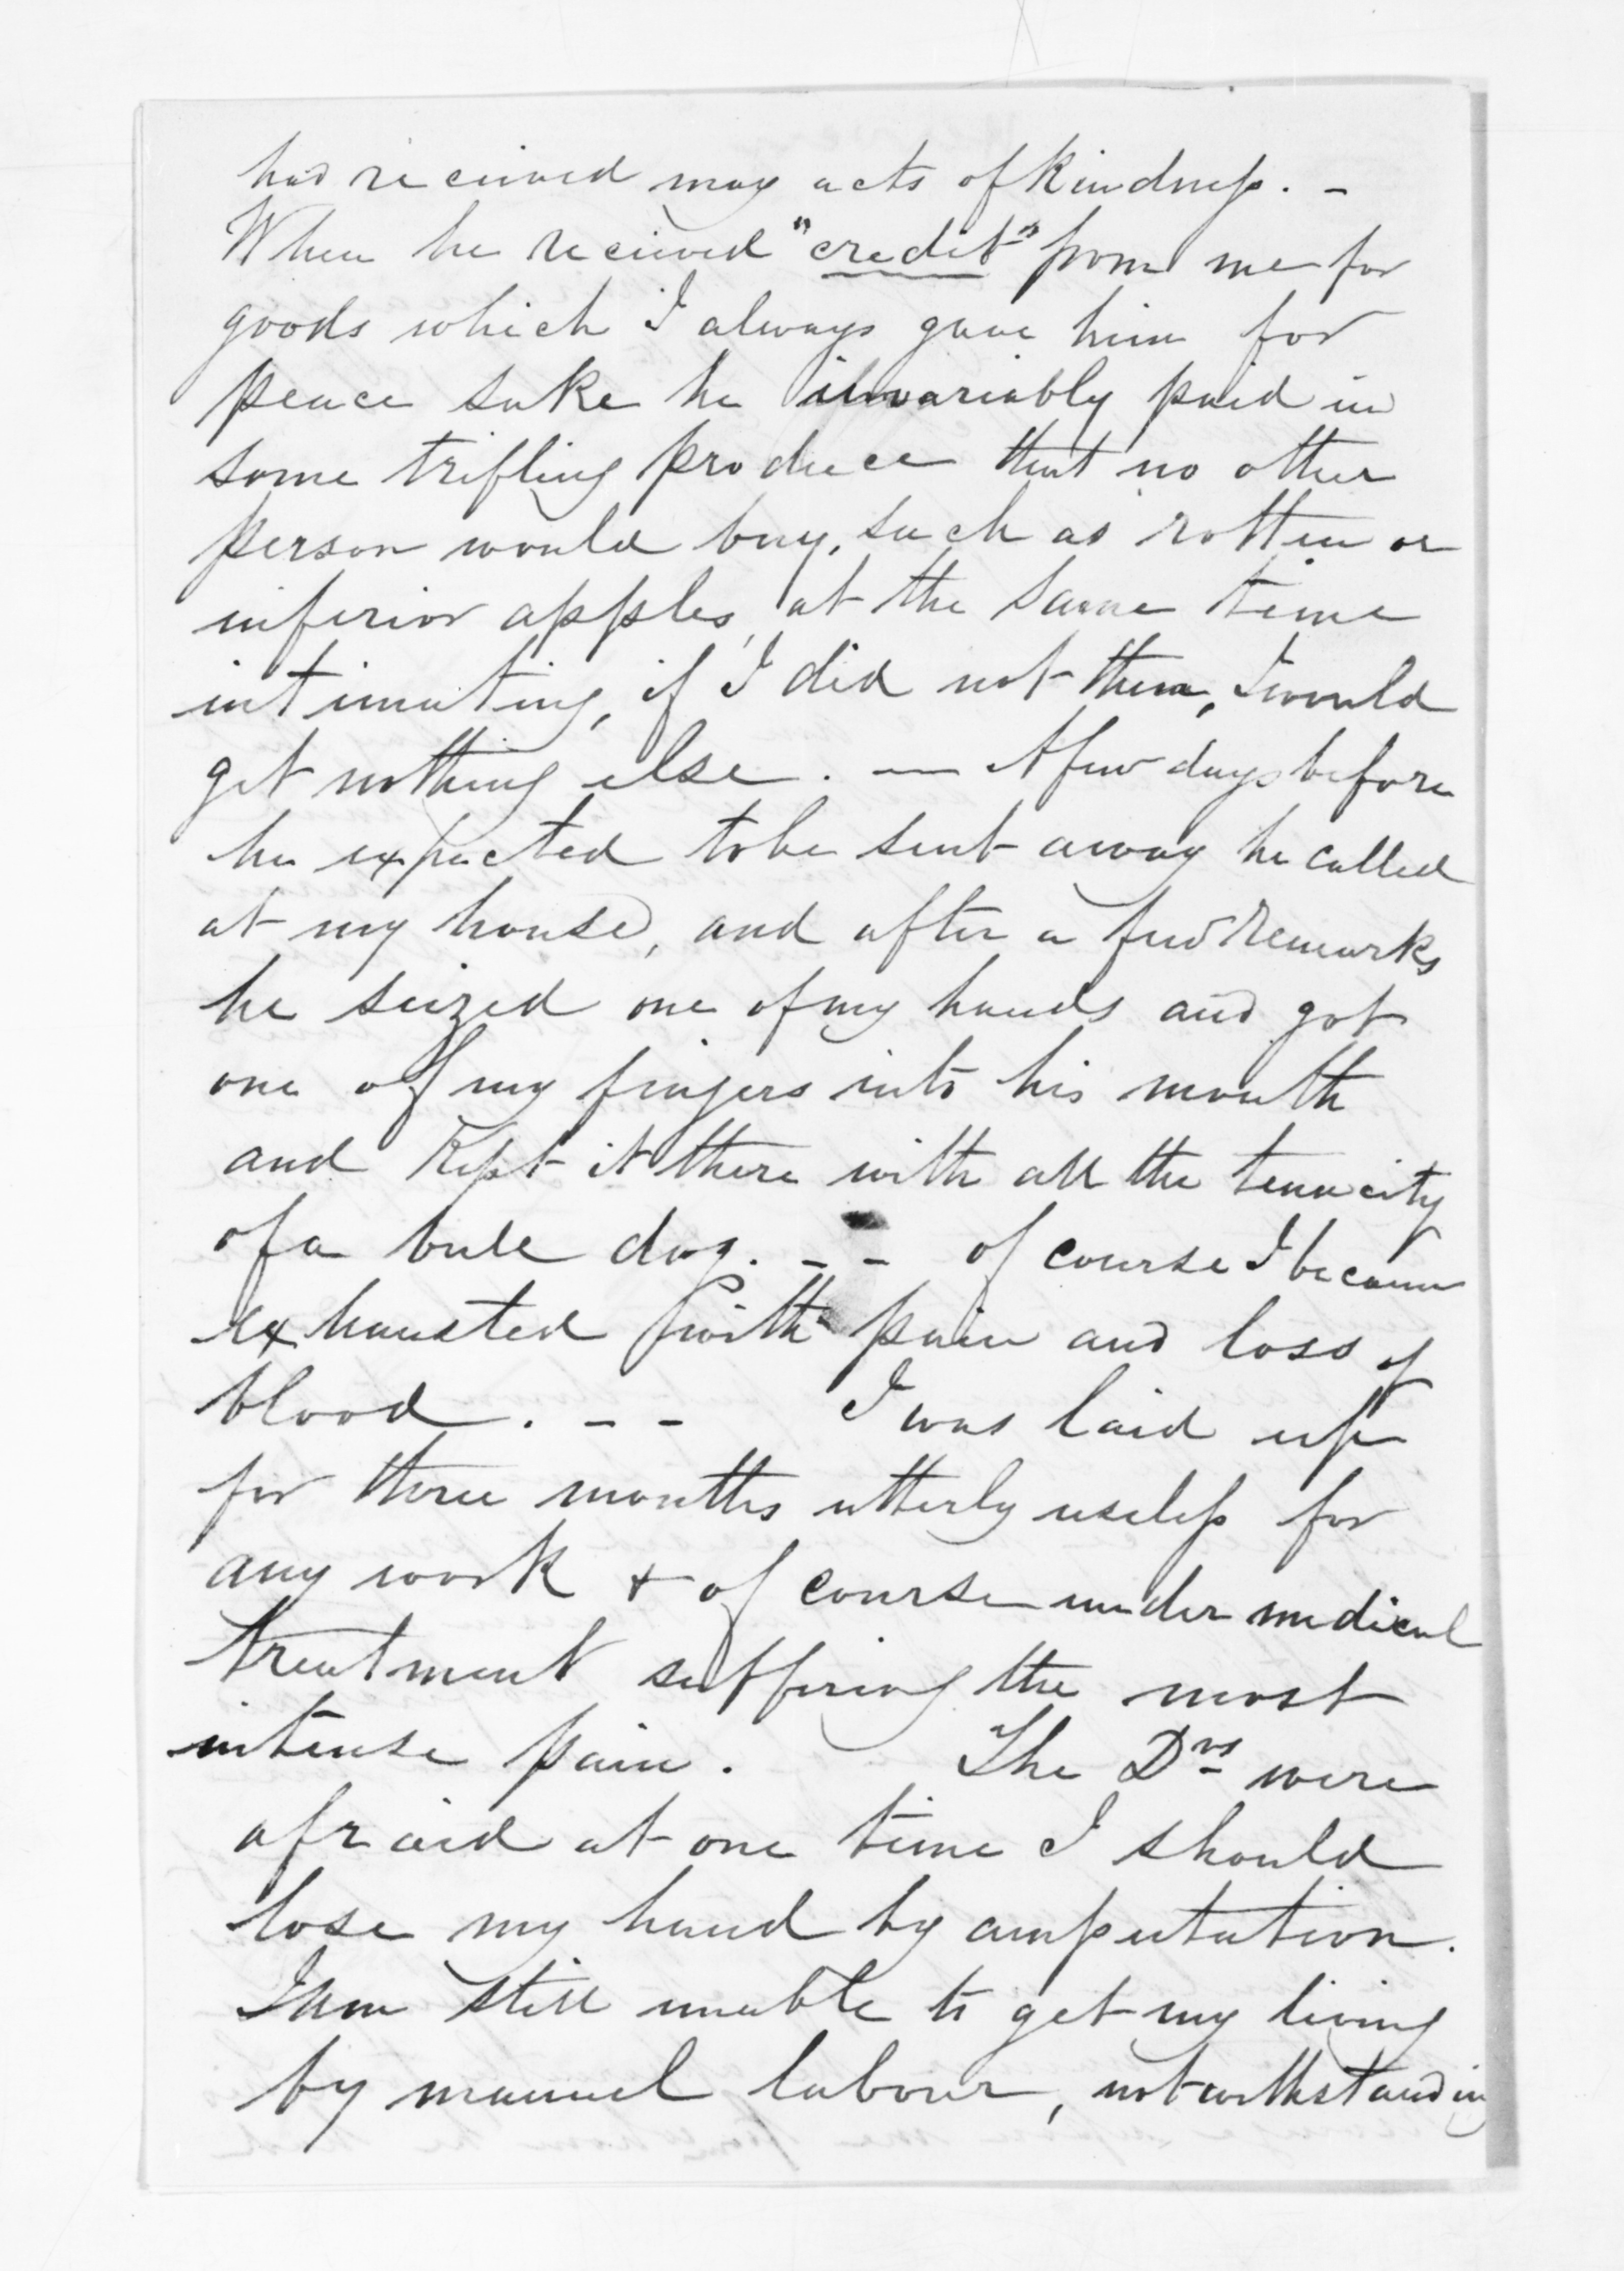 had received may acts of kindness. -
When he recieved "credit" from me for
goods which I always gave him for
peace sake he invariably paid in
some trifling produce that no other
person would buy, such as rotten or
inferior apples, at the same time
intimating, if I did not them, I would
get nothing else. — A few days before
he expected to be sent away he called
at my house, and after a few remarks
he seized one of my hands and got
one of my fingers into his mouth
and kept it there with all the tenacity
of a bull dog. - - of course I became
exhausted with pain and loss of
blood. - - I was laid up
for three months utterly useless for
any work & of course under medical
treatment suffering the most
intense pain. The Drs were
afraid at one time I should
lose my hand by amputation.
I am still unable to get my living
by manuel labour, notwithstanding